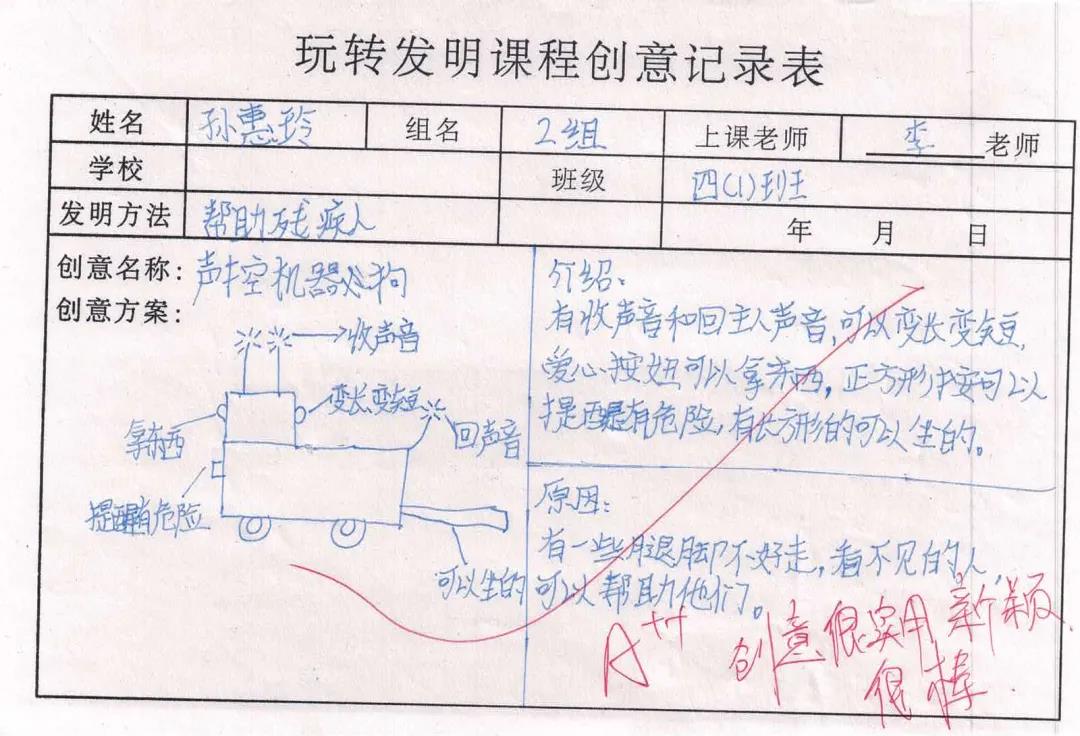 玩转发明课程创意记录表
姓名 孙惠玲 组名 2组 上课老师 李 老师
学校 班级 四(1)班
发明方法 帮助残疾人 年 月 日
创意名称：声控机器人狗
创意方案：
收声音
变长变短
拿东西
回声音
提醒有危险
可以坐的
介绍：
有收声音和回主人声音，可以变长变短，
爱心按妞可以拿东西，正方形按可以
提醒有危险，有长方形的可以坐的。
原因：
有一些腿脚不好走，看不见的人，
可以帮助他们。
A++ 创意很实用新颖，
很棒